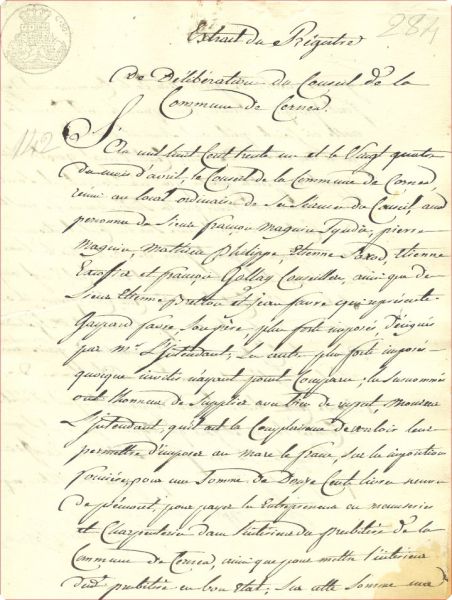 284
Extrait du Régistre
De Deliberation du Conseil de la
Commune de
142
L'an mil huit Cent trente un et le Vingt quatre
du mois d'avril, le Conseil de la Commune de
réuni au local ordinaire de ses séances du Conseil, aux
personnes de Sieurs françois maquin Syndic, pierre
maquin, mathieu philippe, Etienne Etienne
et françois Gallay Conseillers, ainsi que de
Sieur Etienne et Jean favre qui représente
Gaspard favre Son père plus fort imposés, désignés
par mr L'Intendant; Les autres plus forts imposés
quoique invités n'ayant point Comparu; les Susnommés
ont l'honneur de Supplier
L'Intendant, qu'il ait la Complaisance de vouloir leur
permettre d'imposer au marc le franc, sur la imposition
foncière, pour une Somme de Douze Cents livres neuves
de piémont, pour payer les Entrepreneurs en menuiserie
et Charpenterie dans l'intérieur du presbitère de la
Commune de ainsi que pour mettre l'intérieur
dudt presbitère en bon Etat; Sur cette Somme